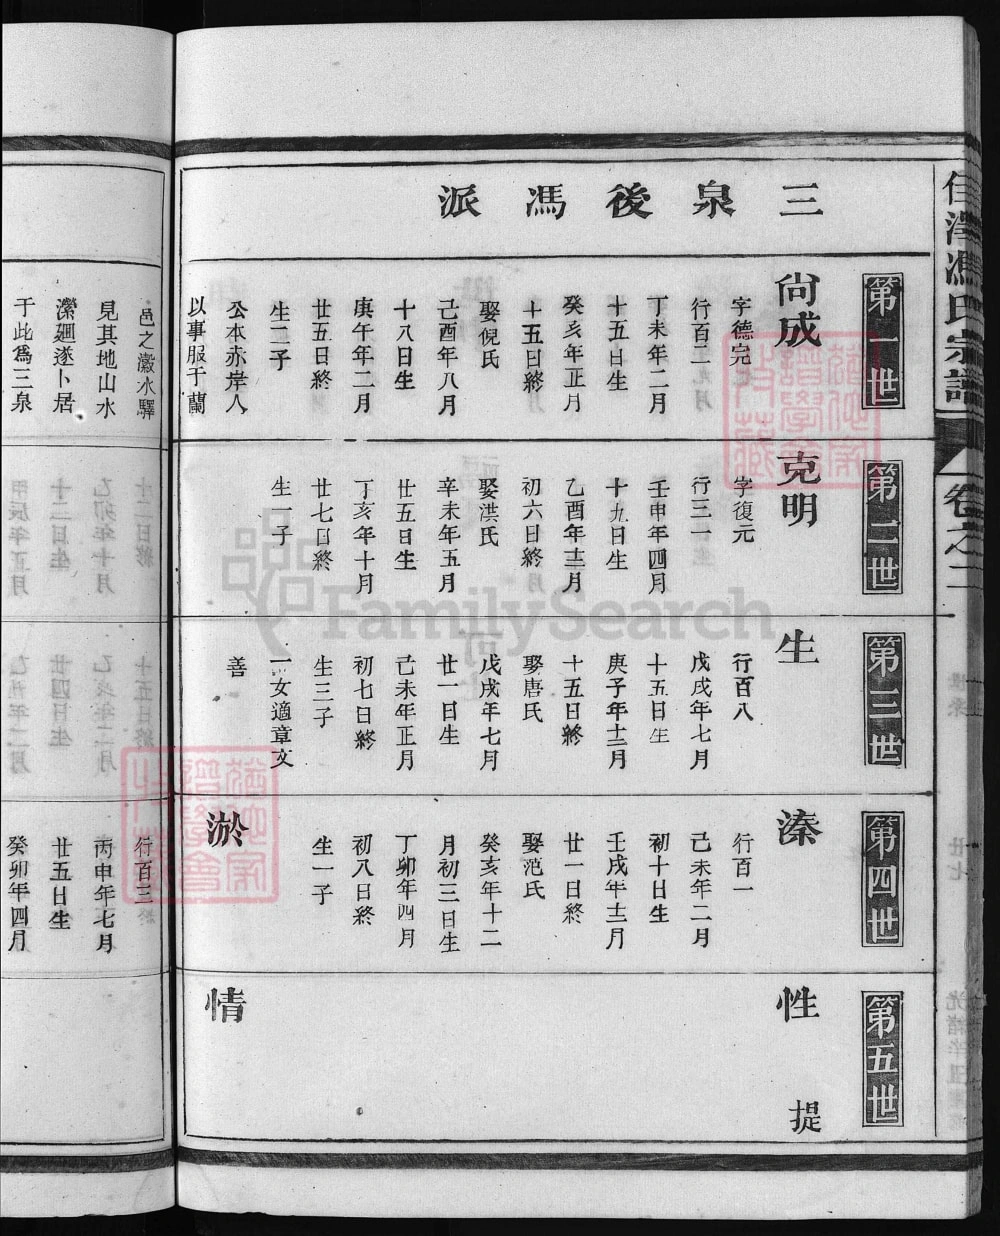 三泉後馮派
第一世
尙成
字德完
行百二
丁未年二月
十五日生
癸亥年正月
十五日終
娶倪氏
己酉年八月
十八日生
庚午年二月
廿五日終
生二子
公本亦岸人
以事服于蘭
第二世
克明
字復元
行三一
壬申年四月
十九日生
乙酉年十二月
初六日終
娶洪氏
辛未年五月
廿五日生
丁亥年十月
廿七日終
生一子
第三世
生
行百八
戊戌年七月
十五日生
庚子年十二月
十五日終
娶唐氏
戊戌年七月
廿一日生
己未年正月
初七日終
生三子
一女適章文
善
第四世
溱
行百一
己未年二月
初十日生
壬戌年十二月
廿一日終
娶范氏
癸亥年十二
月初三日生
丁卯年四月
初八日終
生一子
淤
第五世
性
提
情
馮氏宗譜
卷之二
邑之瀫水驛
見其地山水
瀠廻遂卜居
于此爲三泉
行百三
丙申年七月
廿五日生
癸卯年四月
FamilySearch